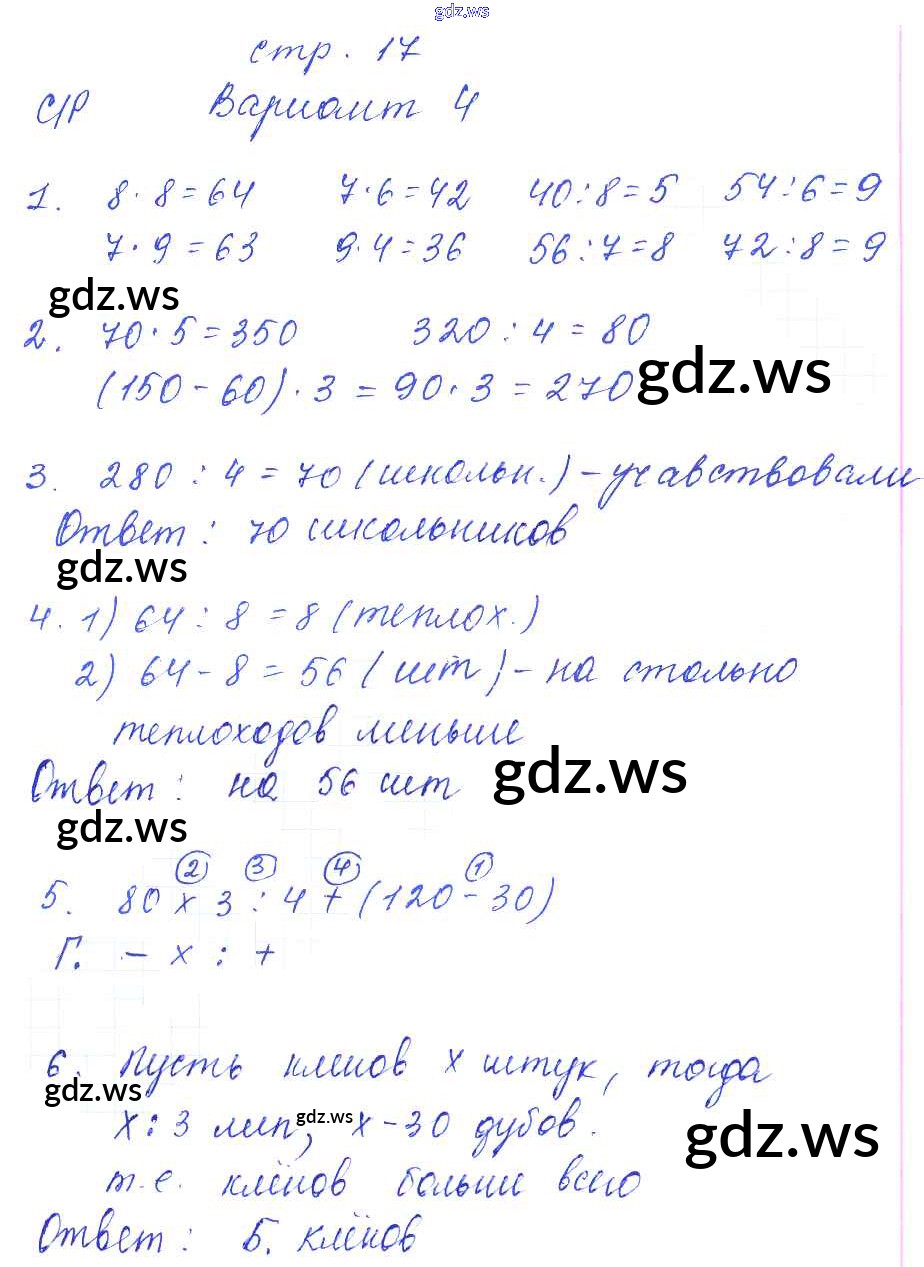 gdz.ws
стр. 17
С/Р Вариант 4
1. 8·8=64 7·6=42 40:8=5 54:6=9
7·9=63 9·4=36 56:7=8 72:8=9
gdz.ws
2. 70·5=350 320:4=80
(150-60)·3=90·3=270
gdz.ws
3. 280:4=70 (школьн.) - учавствовали
Ответ: 70 школьников
gdz.ws
4. 1) 64:8=8 (теплох.)
2) 64-8=56 (шт) - на столько
теплоходов меньше
Ответ: на 56 шт
gdz.ws
gdz.ws
② ③ ④ ①
5. 80 x 3 : 4 + (120 - 30)
Г. - x : +
6. Пусть клёнов x штук, тогда
gdz.ws
x:3 лип, x-30 дубов.
gdz.ws
gdz.ws
т.е. клёнов больше всего
Ответ: Б. клёнов